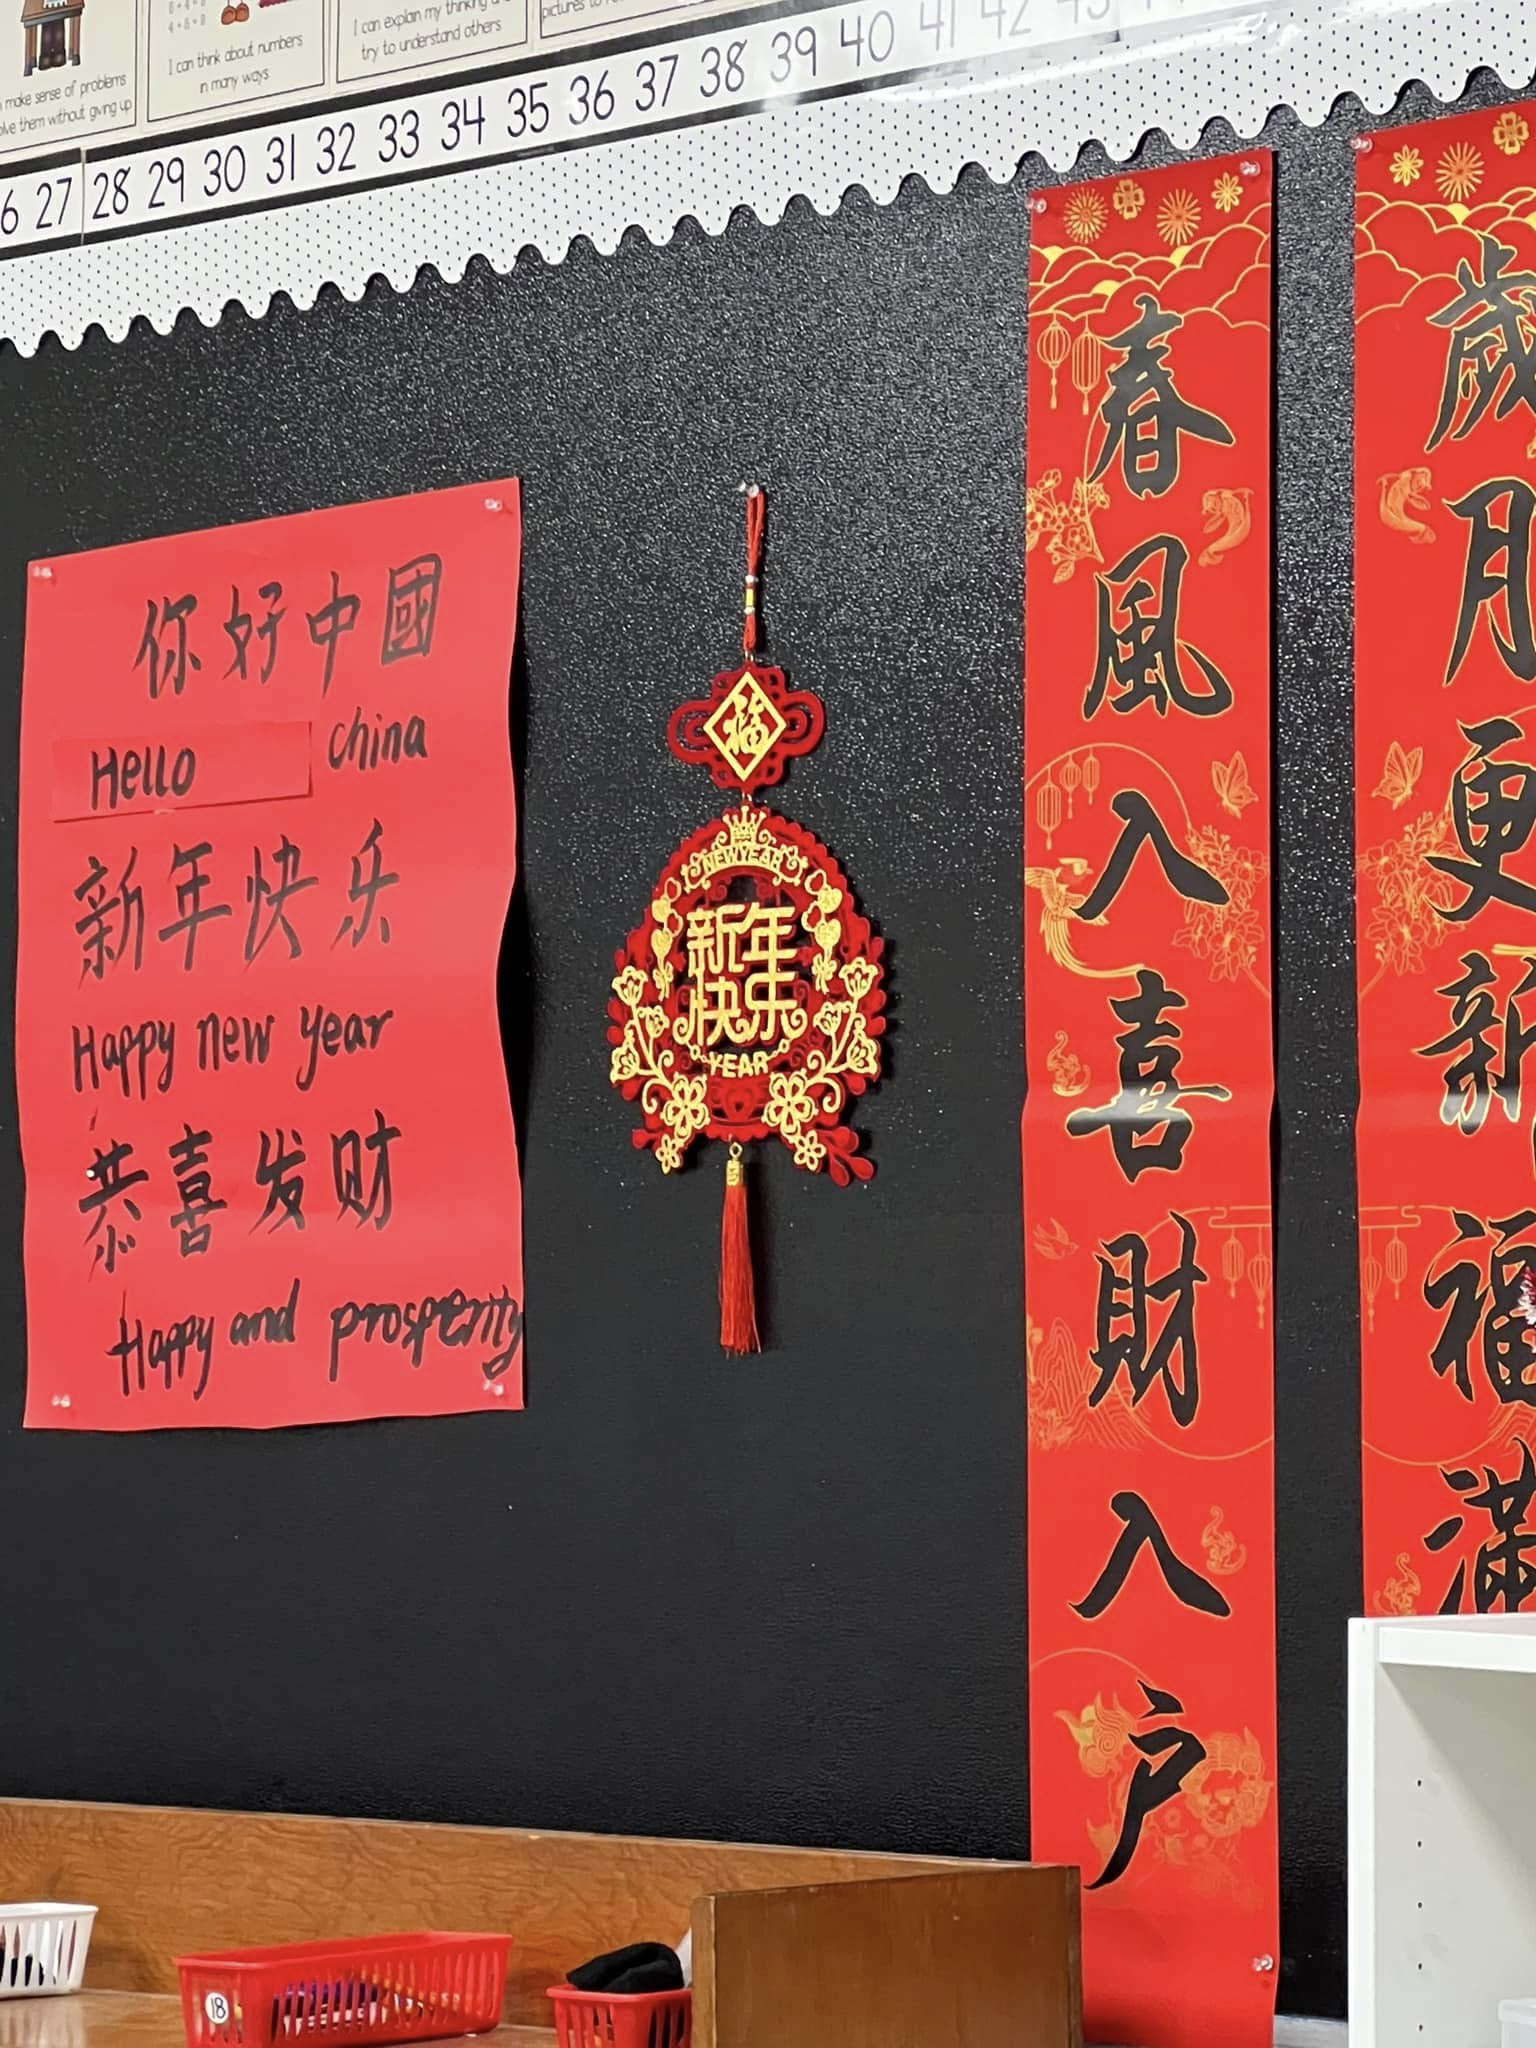 6+4=10
4+6=10
make sense of problems
solve them without giving up
I can think about numbers
in many ways
I can explain my thinking
try to understand others
pictures to
6 27 28 29 30 31 32 33 34 35 36 37 38 39 40 41 42 43
你好中國
Hello China
新年快乐
Happy new year
恭喜发财
Happy and prosperity
福
NEW YEAR
新年
快乐
YEAR
春風入喜財入户
歲月更新福滿
18